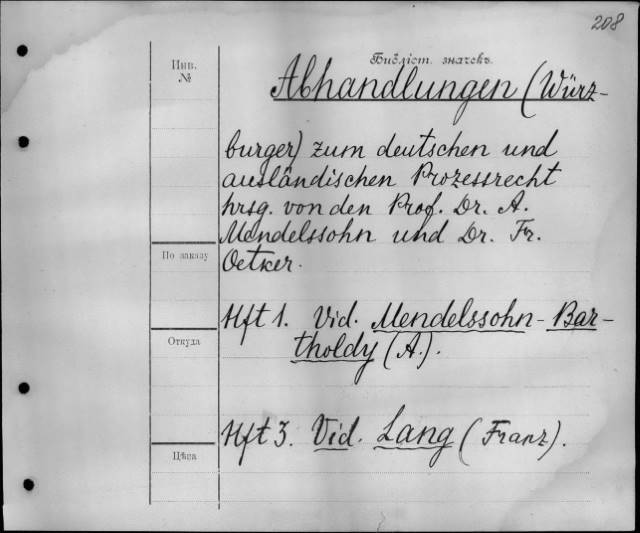 208
Инв.
№
Библіот. значекъ.
Abhandlungen (Würz-
burger) zum deutschen und
ausländischen Prozessrecht
hrsg. von den Prof. Dr. A.
Mendelssohn und Dr. Fr.
По заказу
Oetker.
Hft 1. Vid. Mendelssohn-Bar-
Откуда
tholdy (A.).
Hft 3. Vid. Lang (Franz).
Цѣна